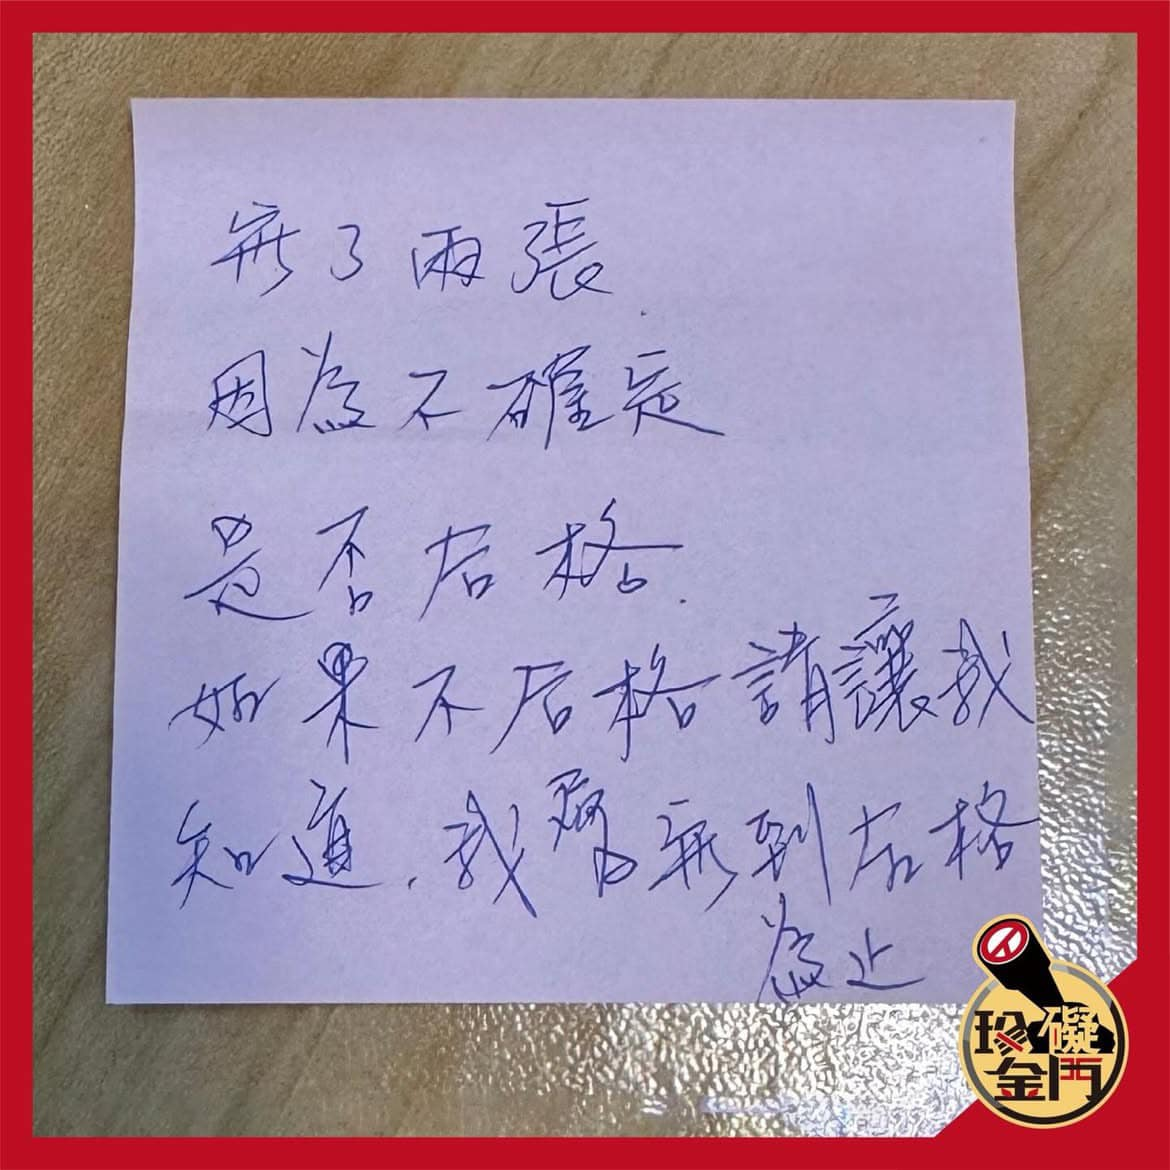 了兩張
因為不確定
是否合格
如果不合格請讓我
知道,我到合格
為止
珍礙
金門